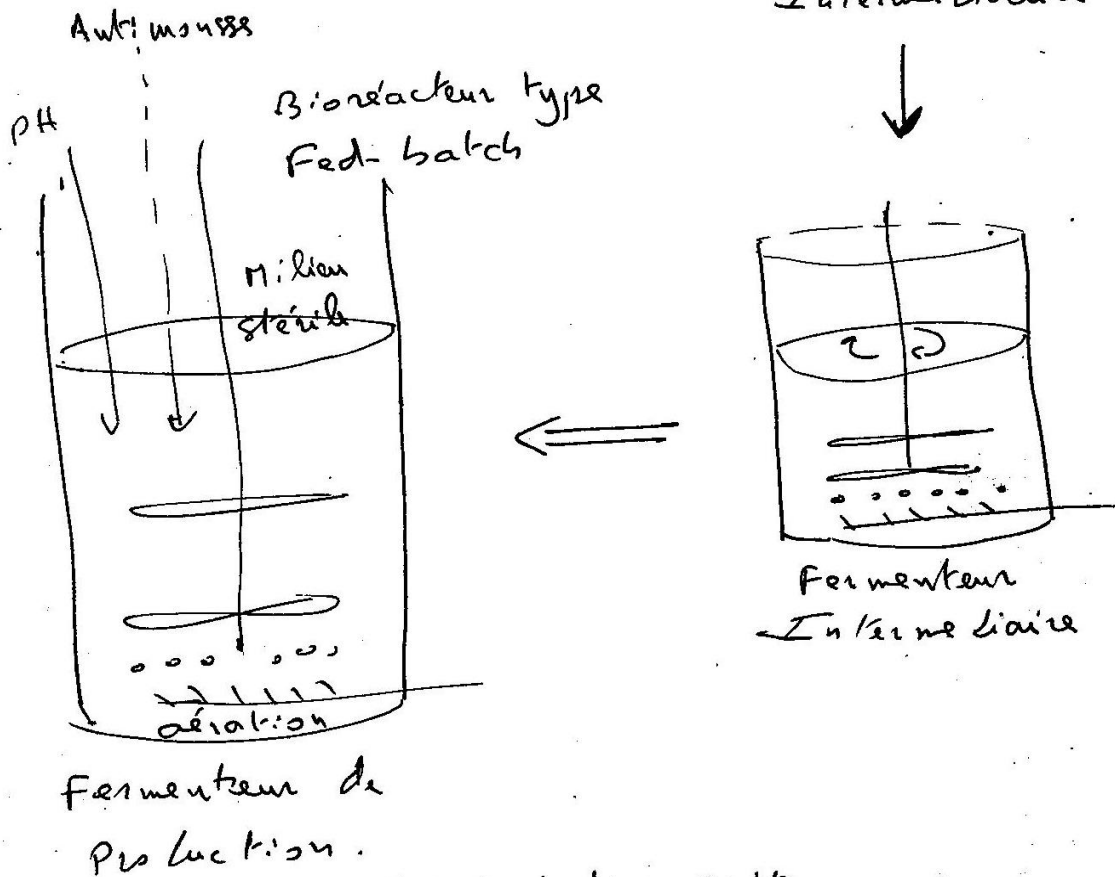 Antimousse
pH
Bioréacteur type
Fed-batch
Milieu
stérile
aération
Fermenteur de
Production.
Fermenteur
Intermediaire